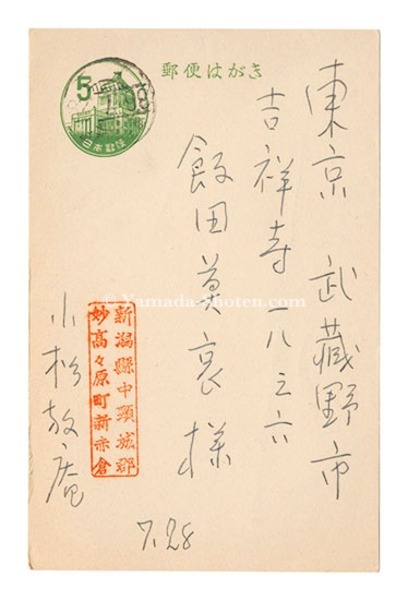 郵便はがき
5
日本郵便
東京 武蔵野市
吉祥寺一八三六
飯田莫哀様
新潟縣中頸城郡
妙高々原町新赤倉
小松放庵
7.28
© Yamada-Shoten.com